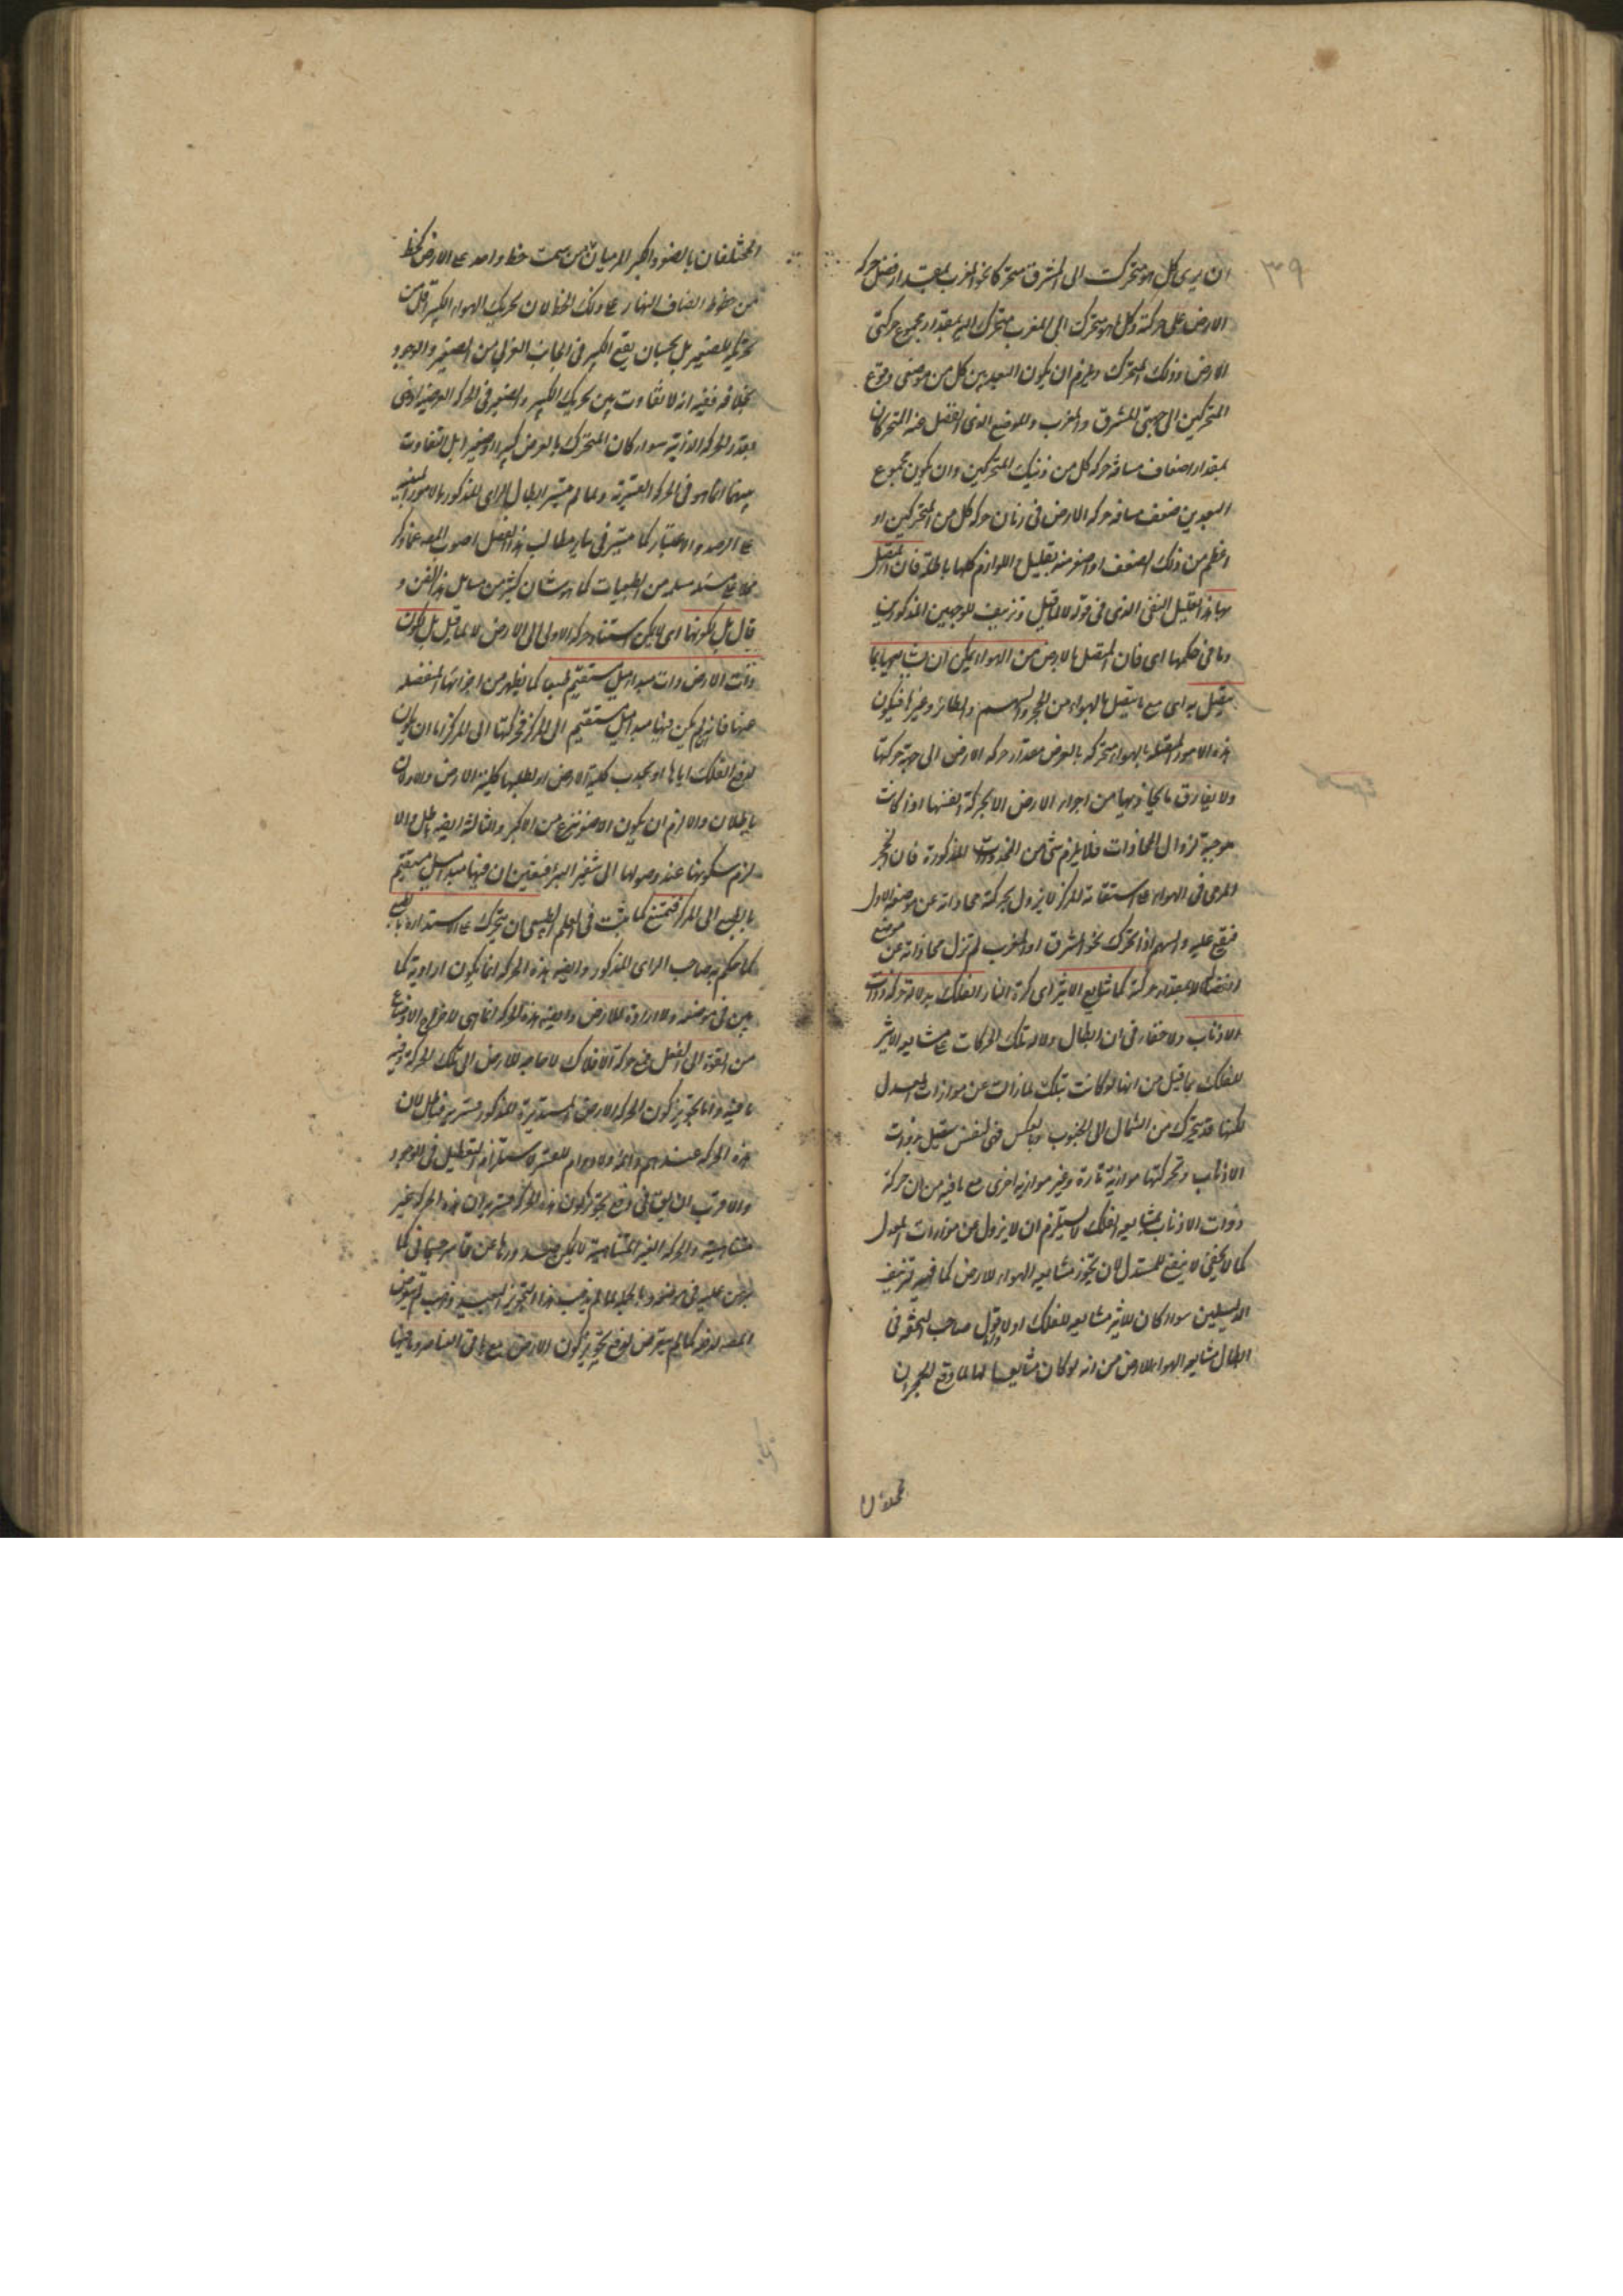 ٣٩
ان يرى كل هو متحرك الى المشرق متحركا نحو المغرب بمقدار فضل حركة
الارض على حركته وكل هو متحرك الى المغرب متحرك اليه بمقدار مجموع حركتي
الارض وذلك المتحرك ويلزم ان يكون البعد بين كل من موضعي وقوع
المتحركين الى جهتي المشرق والمغرب والموضع الذي انفصل عنه المتحركان
بمقدار اضعاف مسافة حركة كل من ذينك المتحركين وان يكون مجموع
البعدين ضعف مسافة حركة الارض في زمان حركة كل من المتحركين او
اعظم من ذلك الضعف او اصغر منه بقليل واللوازم كلها باطلة فان المتصل
بها هذا تعليل النفي الذي في قوله لا لما قيل وتزييف للوجهين المذكورين
وما في حكمها اى فان المتصل بالارض من الهواء يمكن ان يشايعها بما
يتصل به اى مع ما يتصل بالهواء من الحجر والسهم والطائر وغيرها فيكون
هذه الامور المتصلة بالهواء متحركة بالعرض بمقدار حركة الارض الى جهة حركتها
ولا يفارق ما يحاذيها من اجزاء الارض الا بحركة انفسها اذا كانت
موجبة لزوال المحاذات فلا يلزم شئ من المحذورات المذكورة فان الحجر
المرمى في الهواء على استقامة المركز لا يزول بحركته محاذاته عن موضعه الاول
فيقع عليه والسهم اذا تحرك نحو المشرق او المغرب لم تزل محاذاته عن موضع
انفصاله الا بمقدار حركته كما يشايع الاثير اى كرة النار الفلك بدلالة حركة ذوات
الاذناب ولا خفاء في ان ابطال دلالة تلك الحركات على مشايعة الاثير
للفلك بما قيل من انها لو كانت بتلك لما زالت عن موازات المعدل
لكنها قد يتحرك من الشمال الى الجنوب وبالعكس فهى لنفس يتعلق بذوات
الاذناب وتحركها موازية تارة وغير موازية اخرى مع ما فيه من ان حركة
ذوات الاذناب بمشايعة الفلك لا يستلزم ان لا يزول عن موازات المعدل
كما لا يخفى لا ينفع المستدل لان تجويز مشايعة الهواء للارض كما فيه تزييف
الدليلين سواء كان للاثير مشايعة للفلك او لا وقول صاحب التحفة في
ابطال مشايعة الهواء للارض من انه لو كان مشايعا لها لما وقع الحجران
المختلفان بالصغر والكبر المرميان من سمت خط واحد على الارض كخط
من خطوط انصاف النهار على ذلك الخط لان تحريك الهواء الكبير اقل من
تحريكه للصغير بل يجب ان يقع الكبير في الجانب الغربى من الصغير والوجود
بخلافه ففيه انه لا تفاوت بين تحريك الكبير والصغير في الحركة العرضية اذ هى
بقدر الحركة الذاتية سواء كان المتحرك بالعرض كبيرا او صغيرا بل التفاوت
بينهما انما هو في الحركة القسرية ولما لم يتيسر ابطال الراى المذكور بالامور المبنية
على الرصد والاعتبار كما يتيسر في ساير مطالب هذا الفصل اضرب المصنف عما ذكر
بناء على مسئلة مسلمة من الطبيعيات كما هو شان كثير من مسايل هذا الفن و
قال بل لكونها اى لا يمكن استناد حركة الاولى الى الارض لا لما قيل بل لكون
ذات الارض ذات مبدا ميل مستقيم طبعا كما يظهر من اجزائها المنفصلة
عنها فانه لو لم يكن فيها مبدا ميل مستقيم الى المركز فحركتها الى المركز اما ان يكون
لدفع الفلك اياها او لجذب كلية الارض او لطلبها كلية الارض والاولان
باطلان والا لزم ان يكون الاصغر اسرع من الاكبر والثالث ايضا باطل والا
لزم سكونها عند وصولها الى شفير البئر فيتعين ان فيها مبدا ميل مستقيم
بالطبع الى المركز فيمتنع كما ثبت في العلم الطبيعى ان يتحرك على الاستدارة بالطبع
كما حكم به صاحب الراى المذكور وايضا هذه الحركة انما يكون ارادية كما
بين في موضعه ولا ارادة للارض وايضا هذه الحركة انما هى لاخراج الاوضاع
من القوة الى الفعل فمع حركة الافلاك لا حاجة للارض الى تلك الحركة وفيه
ما فيه واما تجويز كون الحركة الارض المستديرة المذكورة قسرية فباطل لان
هذه الحركة عندهم دائمة ولا دوام للقسر لاستلزام التعطيل في الوجود
والاقرب ان يقال في دفع تجويز كون هذه الحركة قسرية ان هذه الحركة غير
متناهية والحركة الغير المتناهية لا يمكن صدورها عن قاسر جسماني كما
برهن عليه في موضعه وبالجملة لما لم يذهب هذا التجويز البعيد ذهب لم يتعرض
المصنف لدفعه كما لم يتعرض لدفع تجويز كون الارض مع باقى العناصر وما فيها
المختلفان